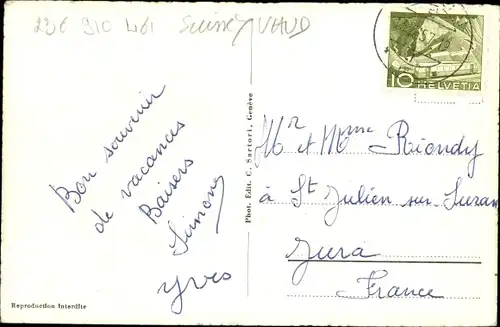 236 910 461 Suisse VAUD
10
HELVETIA
Bon souvenir
de vacances
Baisers
Simone
Yves
Phot. Edit. C. Sartori, Genève
Mr et Mme Riondy
à St Julien sur Suran
Jura
France
Reproduction interdite